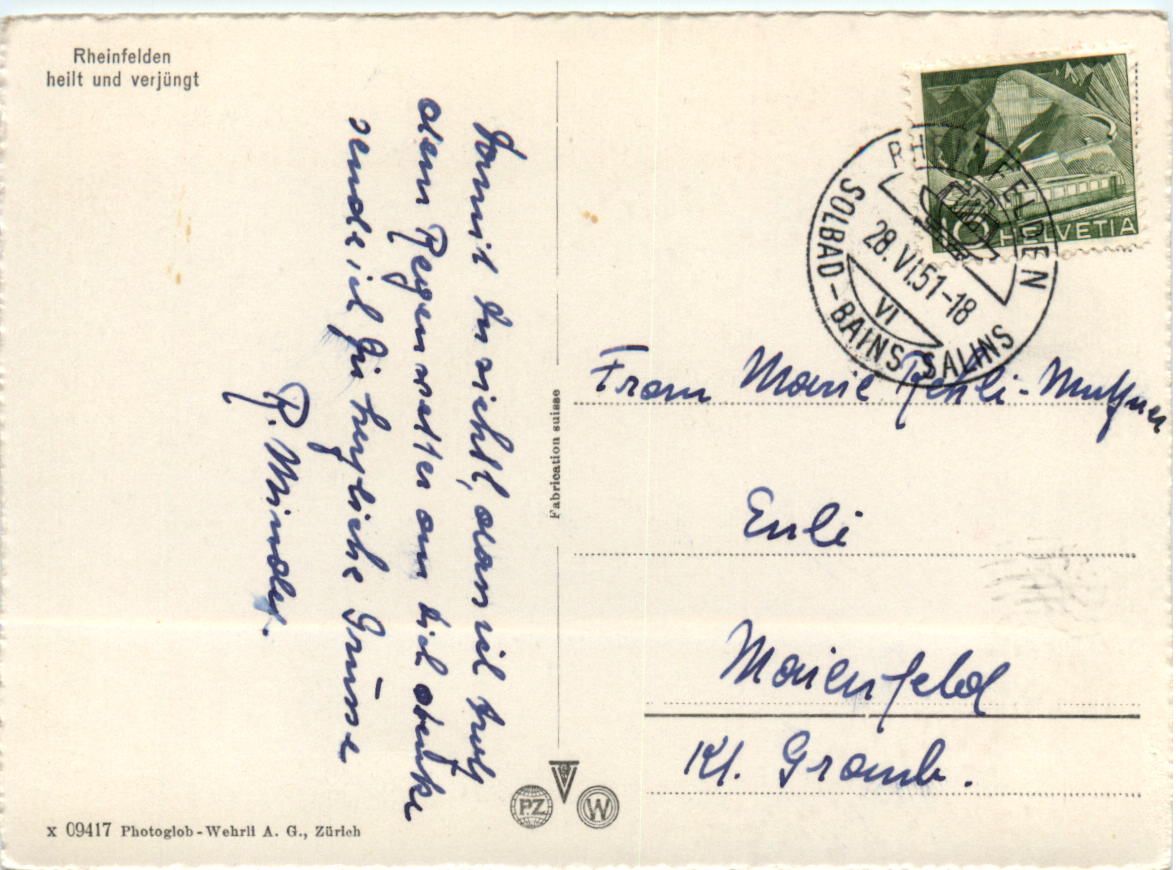 Rheinfelden
heilt und verjüngt
Damit Du siehst, dass ich trotz
dem Regenwetter an Dich denke
sende ich Dir herzliche Grüsse
R. Minder.
Fabrication suisse
HELVETIA
10
RHEINFELDEN
28.VI.51-18
VI
SOLBAD-BAINS SALINS
Frau Marie
Enderli
Maienfeld
Kt. Graub.
PZ
W
x 09417 Photoglob-Wehrli A. G., Zürich